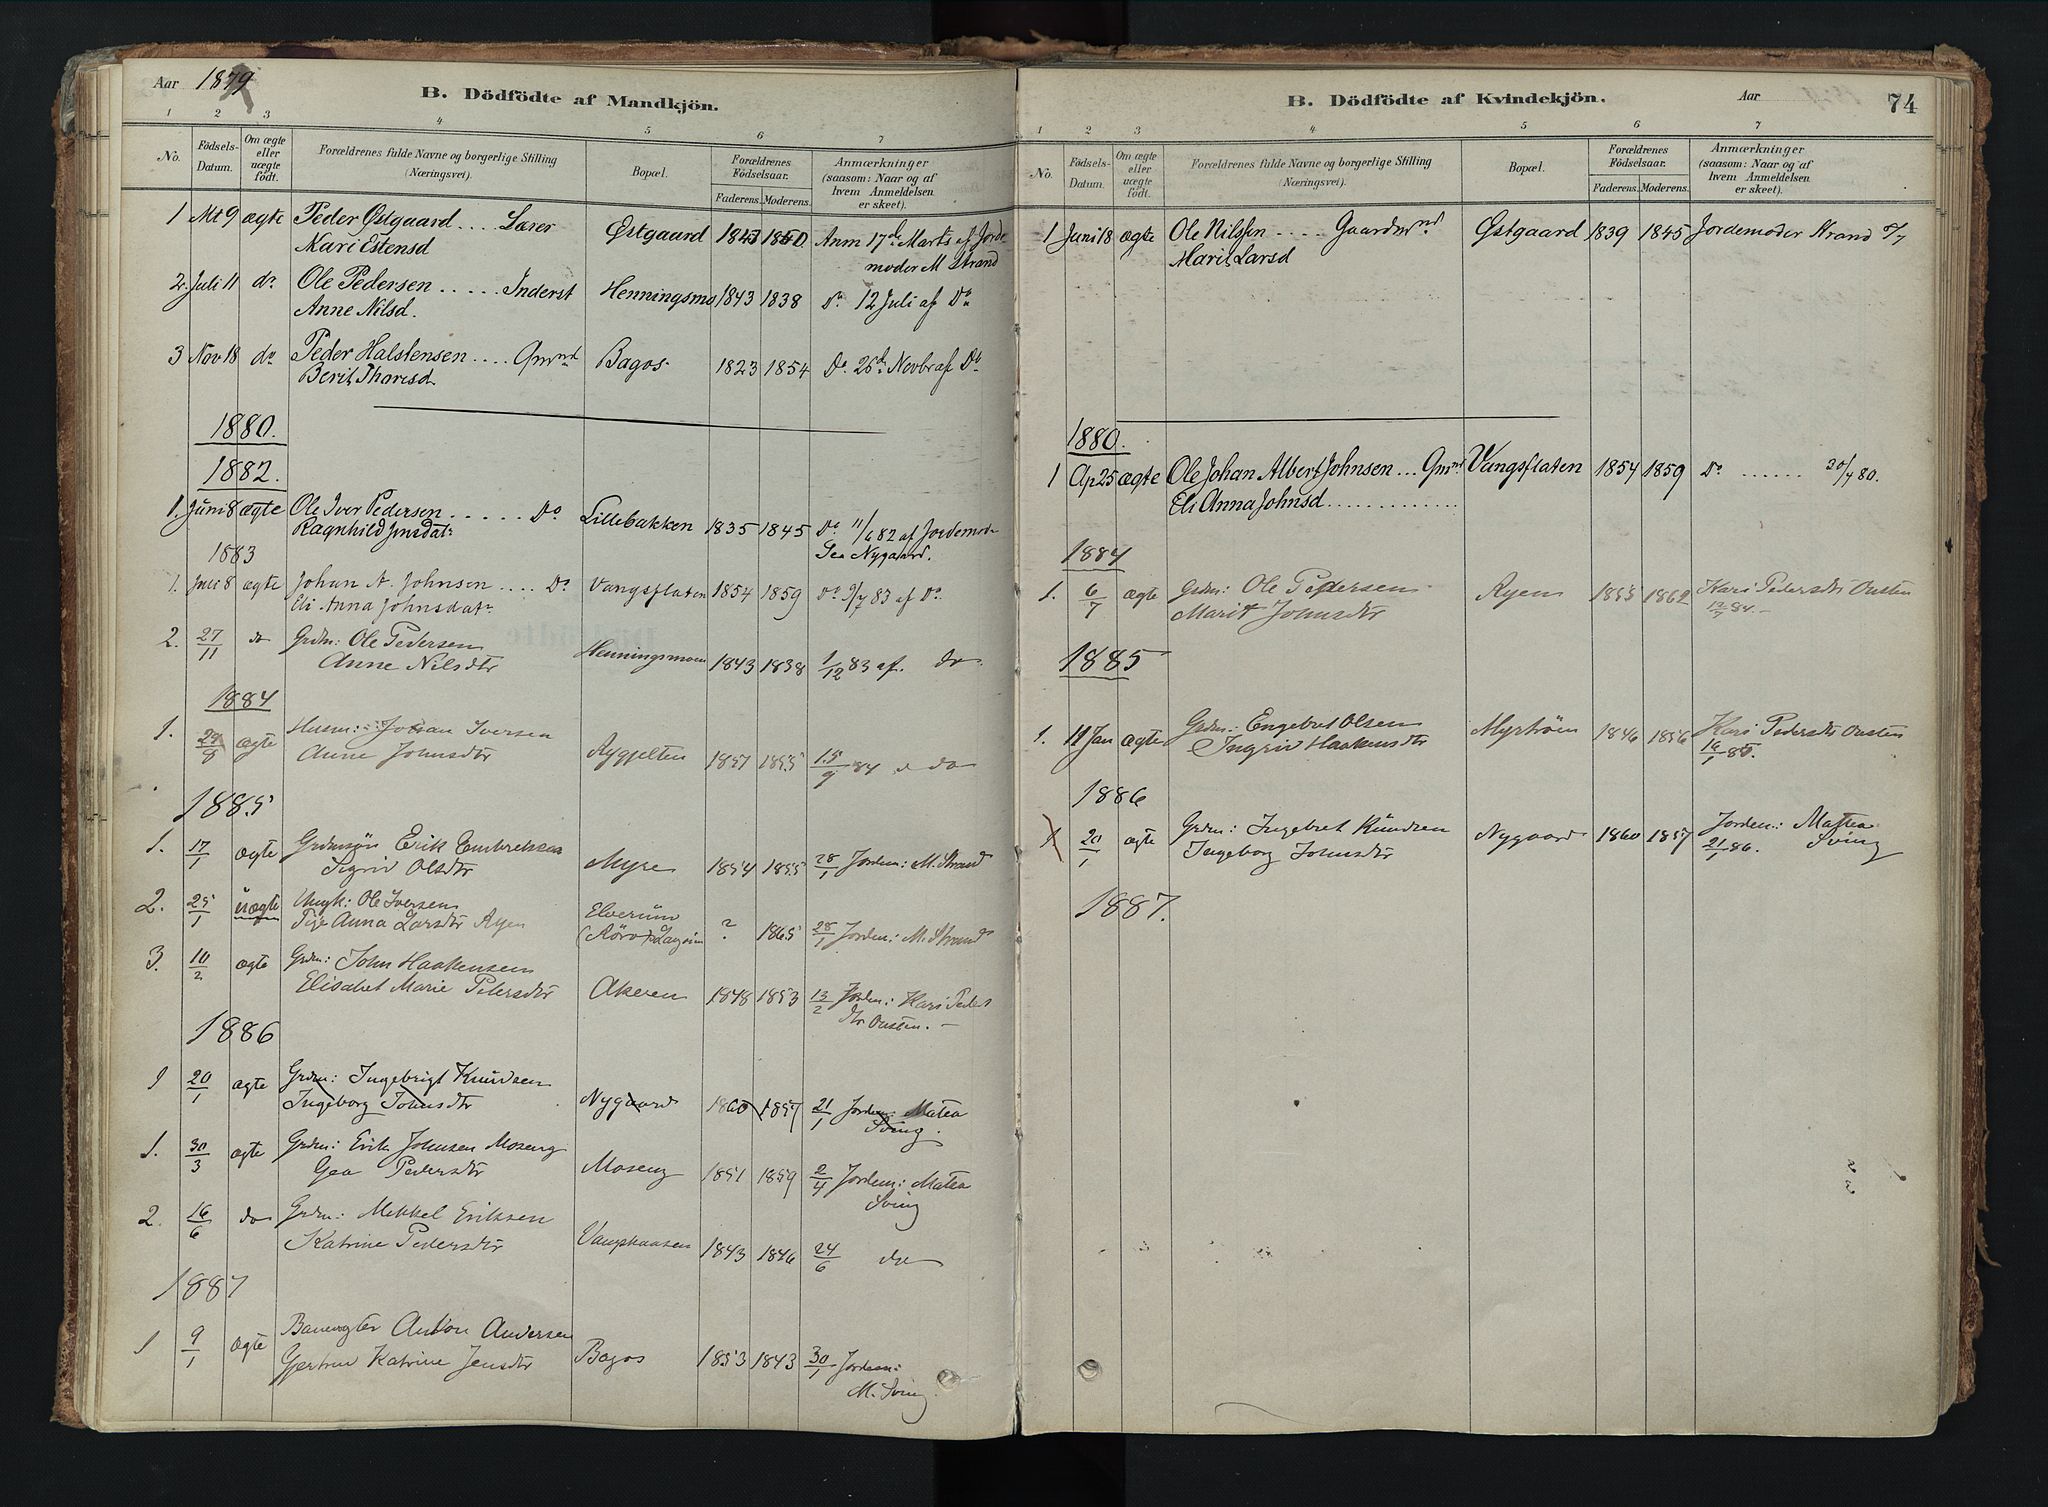 Aar 1879
B. Dödfödte af Mandkjön.
1 2 3 4 5 6 7
No. Födsels-Datum. Om ægte eller uægte født. Forældrenes fulde Navne og borgerlige Stilling (Næringsvei). Bopæl. Forældrenes Födselsaar. Faderens. Moderens. Anmærkninger (saasom: Naar og af hvem Anmeldelsen er skeet).
1 Mt 9 ægte Peder Østgaard .... Lærer Østgaard 1843 1850 Anm 17de Marts af Jorde
Kari Estensd moder M Strand
2. Juli 11 do Ole Pedersen ..... Inderst Henningsmo 1843 1838 Do 12 Juli af Do
Anne Nilsd.
3 Nov 18 do Peder Halstensen .... Gmnd Bagos 1823 1854 Do 26de Novbr af Do
Berit Tharisd
1880.
1882.
1. Juni 8 ægte Ole Iver Pedersen ..... Do Lillebakken 1835 1845 Do 11/6 82 af Jordemod
Ragnhild Jonsdatr Gea Nygaard.
1883
1. Juli 8 ægte Johan A. Johnsen .... Do Vangsflaten 1854 1859 Do 9/7 83 af Do.
Eli Anna Johnsdatr
2. 27/11 do Grdm: Ole Pedersen Henningsmoen 1843 1838 1/12 83 af. do
Anne Nilsdtr
1884
1. 29/8 ægte Husm: Johan Iversen Rygjelten 1857 1855 15/9 84 do
Anne Johnsdtr
1885
1. 17/1 ægte Grdmsøn Erik Embretsen Myre 1854 1855 28/1 Jordm: M. Strand
Sigrid Olsdtr
2. 25/1 uægte Ungk: Ole Iversen Elverum ? 1865 28/1 Jordm: M. Strand
Pige Anna Larsdtr Ryen
3. 10/2 ægte Grdm: John Haakensen Akeren 1848 1853 13/2 Jordm: Kari Peders
Elisabet Marie Petersdtr dtr Ousten. -
1886
1 20/1 ægte Grdm: Ingebrigt Knudsen Nygaard 1860 1857 21/1 Jordem: Matea
Ingeborg Johnsdtr Sving.
1. 30/3 ægte Grdm: Erik Johnsen Moseng Moseng 1851 1859 2/4 Jordem: Matea
Gea Pedersdtr Sving
2. 16/6 do Grdm: Mekkel Eriksen Vangskaasen 1843 1846 24/6 do
Katrine Pedersdtr
1887
1 9/1 ægte Banevogter Anton Andersen Bagos 1853 1843 30/1 Jordem:
Gjertrud Katrine Jensdtr M. Sving.
B. Dödfödte af Kvindekjön.
Aar
74
1 2 3 4 5 6 7
No. Födsels-Datum. Om ægte eller uægte født. Forældrenes fulde Navne og borgerlige Stilling (Næringsvei). Bopæl. Forældrenes Födselsaar. Faderens. Moderens. Anmærkninger (saasom: Naar og af hvem Anmeldelsen er skeet).
1 Juni 18 ægte Ole Nilssen .... Gaardmnd Østgaard 1839 1845 Jordemoder Strand
Marit Larsd
1880.
1 Ap 25 ægte Ole Johan Albert Johnsen ... Gmnd Vangsflaten 1854 1859 Do ...... 20/7 80.
Eli Anna Johnsd .............
1884
1. 6/7 ægte Grdm: Ole Pedersen Ryen 1855 1862 Kari Pedersdtr Ousten
Marit Johnsdtr 12/7 84. -
1885
1. 11 Jan ægte Grdm: Engebret Olsen Myrtrøen 1846 1856 Kari Pedersdtr Ousten
Ingrid Haakensdtr 16/1 85.
1886
1 20/1 ægte Grdm: Ingebret Knudsen Nygaard 1860 1857 Jordem: Mattea
Ingeborg Johnsdtr 21/1 86. Sving
1887.